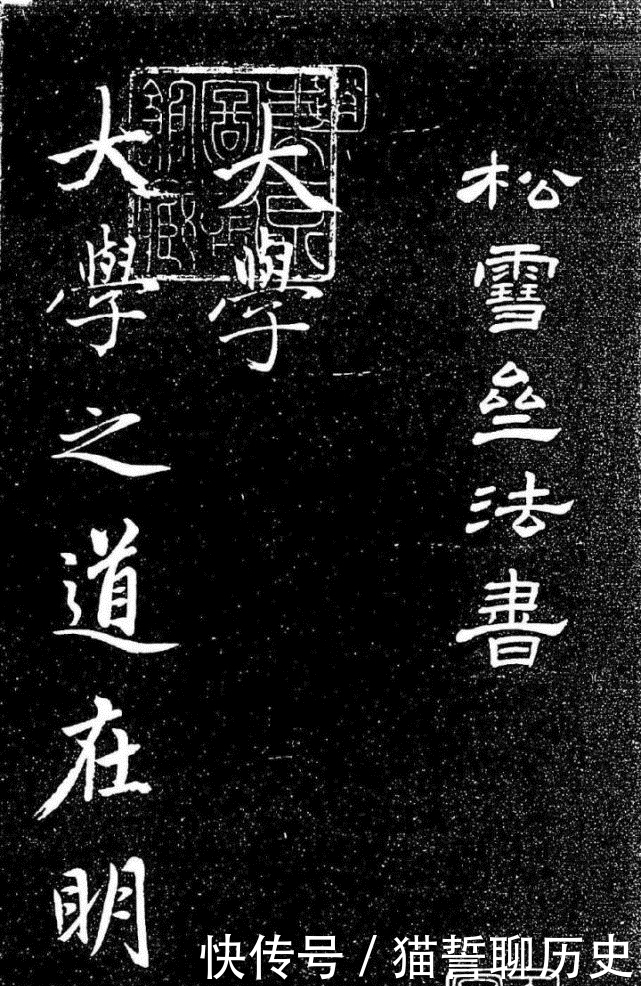 松雪亝法書
大學
大學之道在明
快传号 / 猫誓聊历史